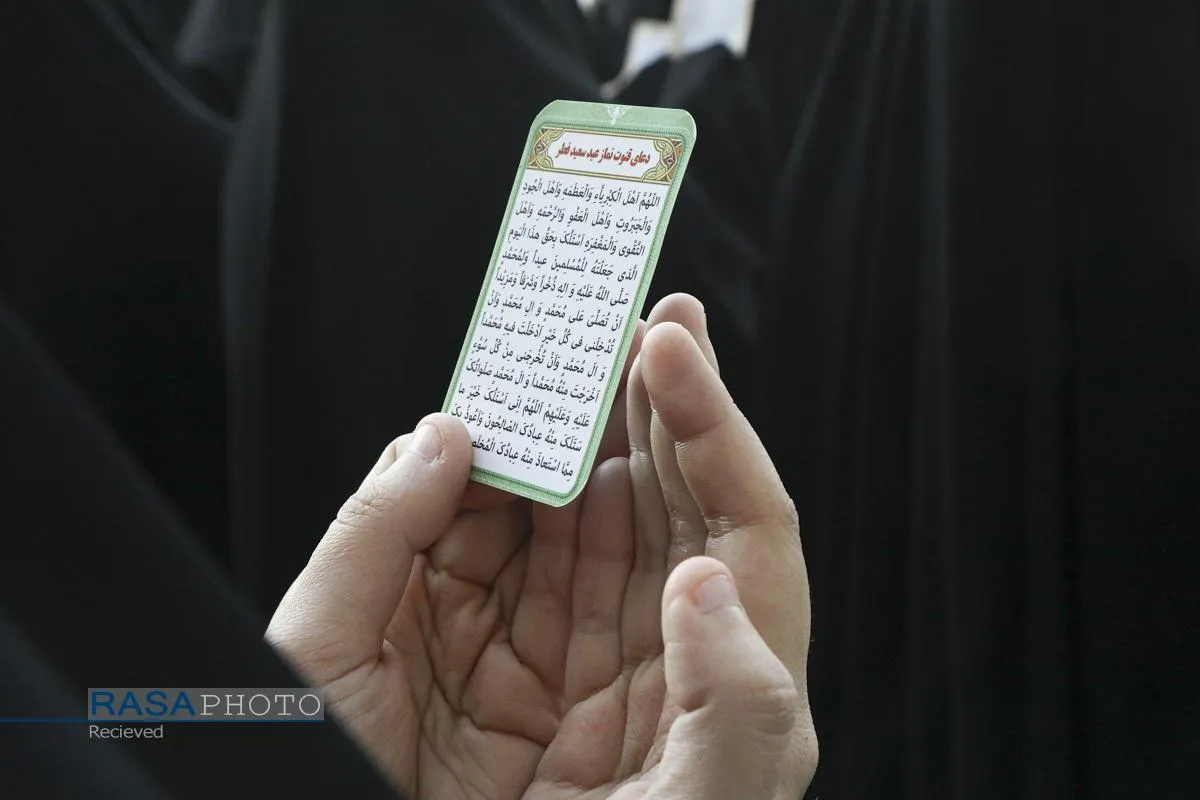 دعای قنوت نماز عید سعید فطر
اَللّٰهُمَّ اَهْلَ الْكِبْرِيٰاءِ وَالْعَظَمَهِ وَاَهْلَ الْجُودِ
وَالْجَبَرُوتِ وَاَهْلَ الْعَفْوِ وَالرَّحْمَهِ وَاَهْلَ
التَّقْوى وَالْمَغْفِرَهِ اَسْئَلُکَ بِحَقِّ هذَا الْیَومِ
الَّذى جَعَلْتَهُ لِلْمُسْلِمینَ عیداً وَلِمُحَمَّدٍ
صَلَّى اللهُ عَلَیْهِ وَ الِهِ ذُخْراً وَشَرَفاً وَمَزیْداً
اَنْ تُصَلِّىَ عَلى مُحَمَّدٍ وَ الِ مُحَمَّدٍ وَاَنْ
تُدْخِلَنى فى کُلِّ خَیْرٍ اَدْخَلْتَ فیهِ مُحَمَّداً
وَ الَ مُحَمَّدٍ وَاَنْ تُخْرِجَنى مِنْ کُلِّ سُوْءٍ
اَخْرَجْتَ مِنْهُ مُحَمَّداً وَ الَ مُحَمَّدٍ صَلَواتُکَ
عَلَیْهِ وَعَلَیْهِمْ اَللّهُمَّ اِنّى اَسْئَلُکَ خَیْرَ ما
سَئَلَکَ مِنْهُ عِبادُکَ الصّالِحُونَ وَاَعُوذُ بِکَ
مِمَّا اسْتَعاذَ مِنْهُ عِبادُکَ
RASA PHOTO
Recieved